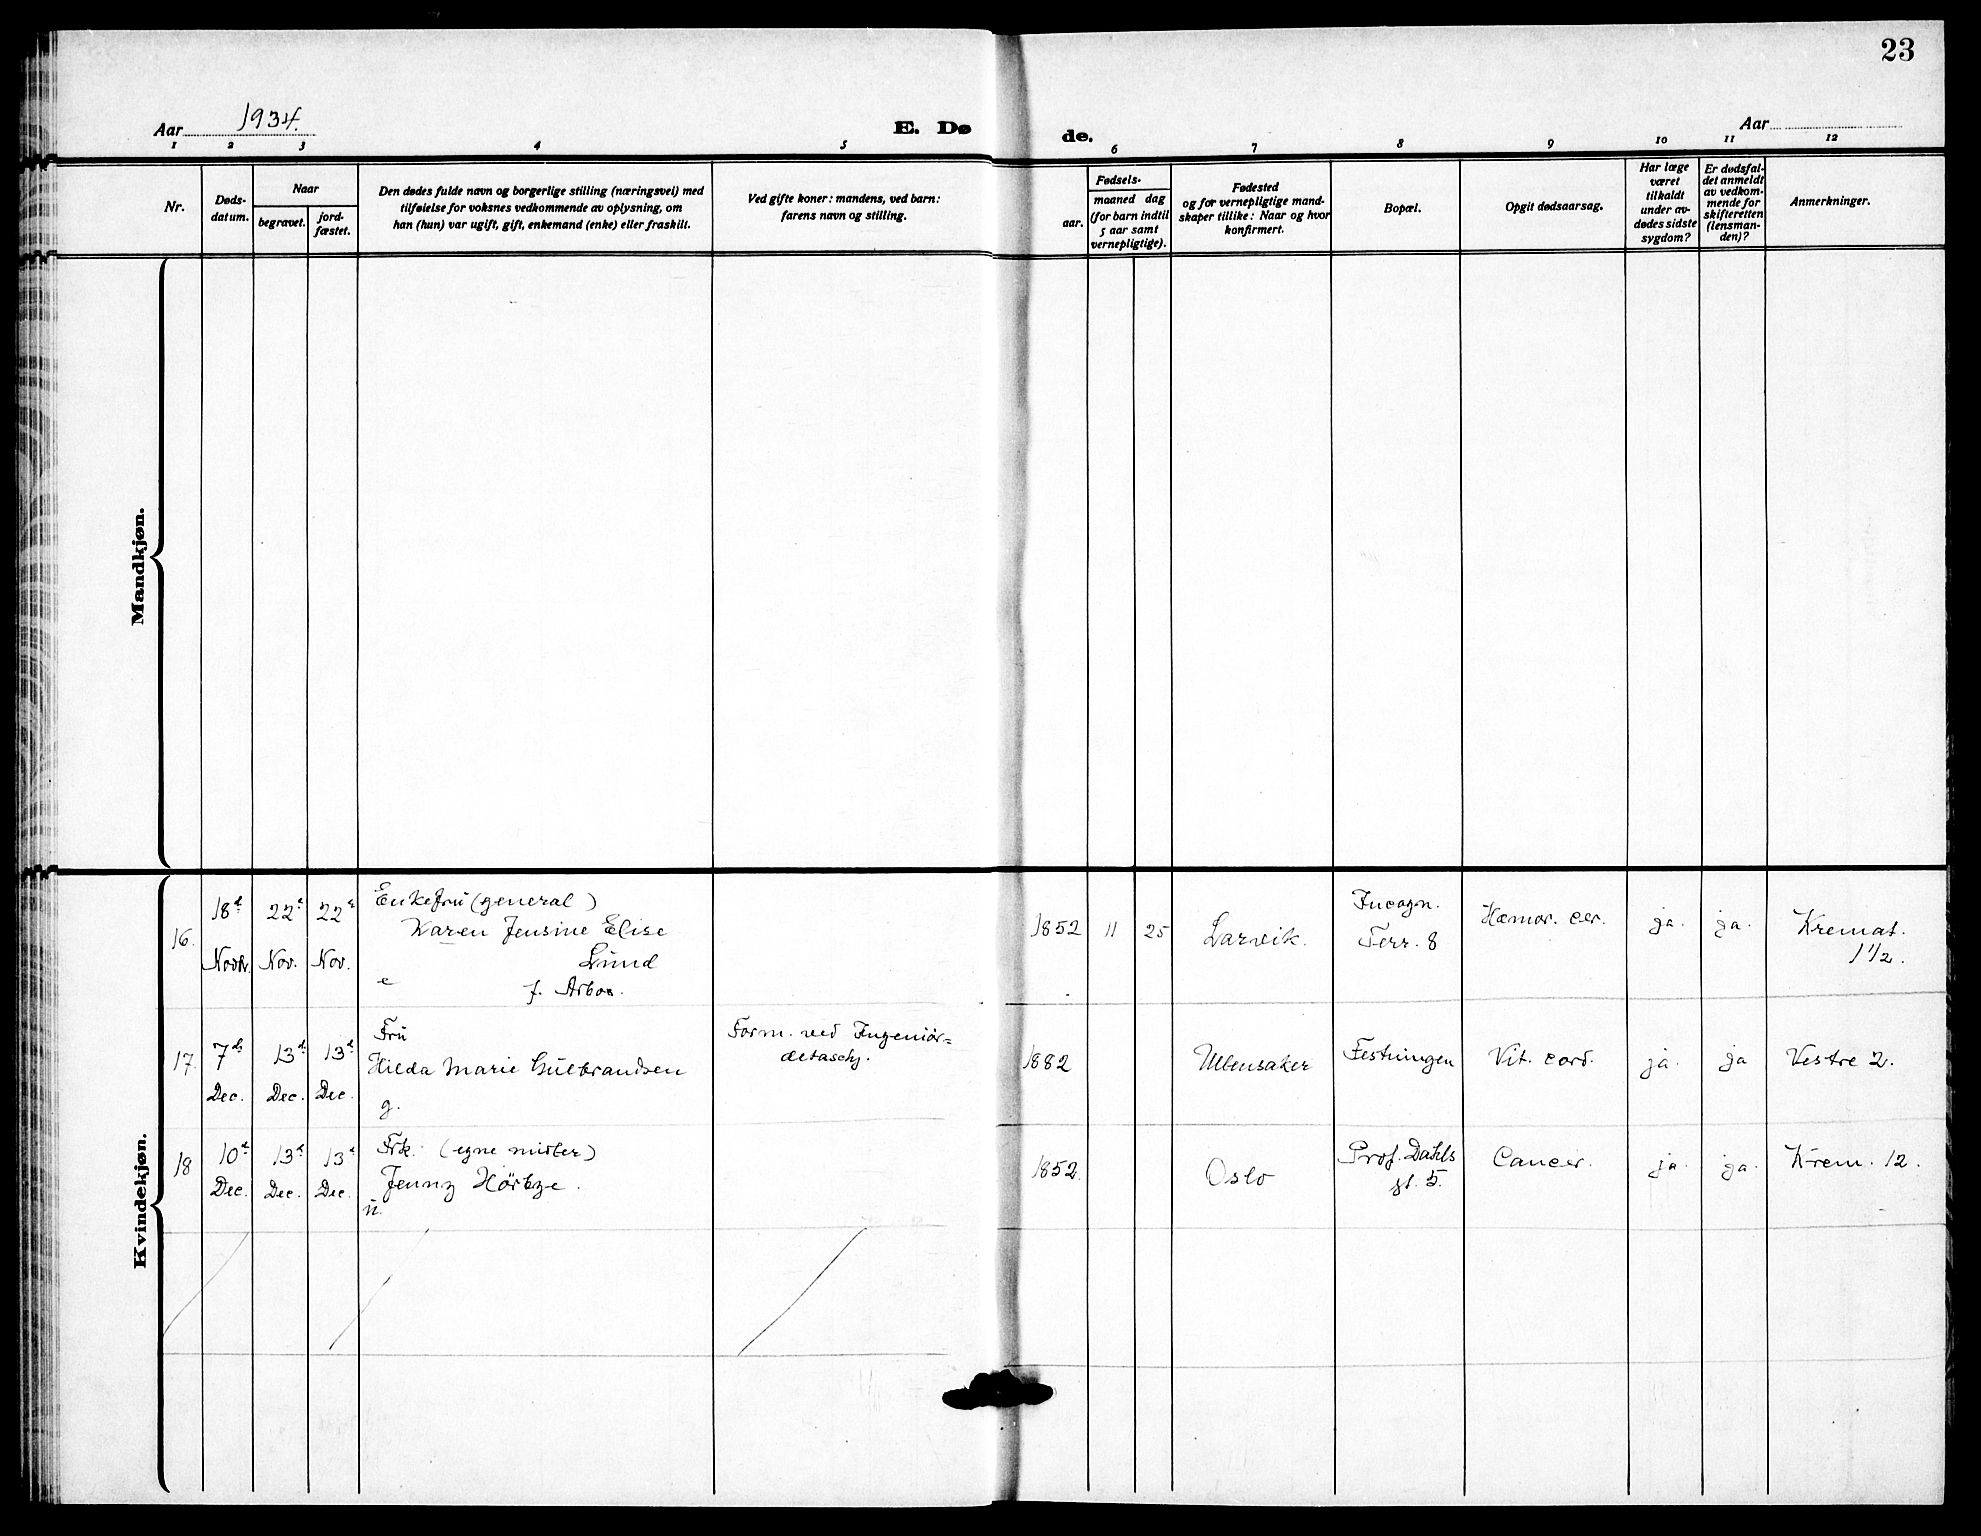 23
Aar 1934.
E. Døde.
Aar
1 2 3 4 5 6 7 8 9 10 11 12
Nr.
Døds-
datum.
Naar
begravet.
jord-
fæstet.
Den dødes fulde navn og borgerlige stilling (næringsvei) med
tilføielse for voksnes vedkommende av oplysning, om
han (hun) var ugift, gift, enkemand (enke) eller fraskilt.
Ved gifte koner: mandens, ved barn:
farens navn og stilling.
Fødsels-
aar.
maaned dag
(for barn indtil
5 aar samt
vernepligtige).
Fødested
og for vernepligtige mand-
skaper tillike: Naar og hvor
konfirmert.
Bopæl.
Opgit dødsaarsag.
Har læge
været
tilkaldt
under av-
dødes sidste
sygdom?
Er dødsfal-
det anmeldt
av vedkom-
mende for
skifteretten
(lensman-
den)?
Anmerkninger.
Mandkjøn.
Kvindekjøn.
16.
18d
Novb.
22d
Nov.
22d
Nov.
Enkefru (general)
Karen Jensine Elise
Lund
e f. Arbo.
1852 11 25
Larvik.
Incogn.
Terr. 8
Hæmor. cer.
ja.
ja.
Kremat.
11/2.
17.
7d
Dec.
13d
Dec.
13d
Dec.
Fru
Hilda Marie Gulbrandsen
g.
Form. ved Ingeniør-
detasch.
1882
Ullensaker
Festningen
Vit. cord.
ja.
ja
Vestre 2.
18
10d
Dec.
13d
Dec.
13d
Dec.
Frk. (egne midler)
Jenny Hørbye.
u.
1852.
Oslo
Prof. Dahls
gt. 5.
Cancer.
ja.
ja.
Krem. 12.